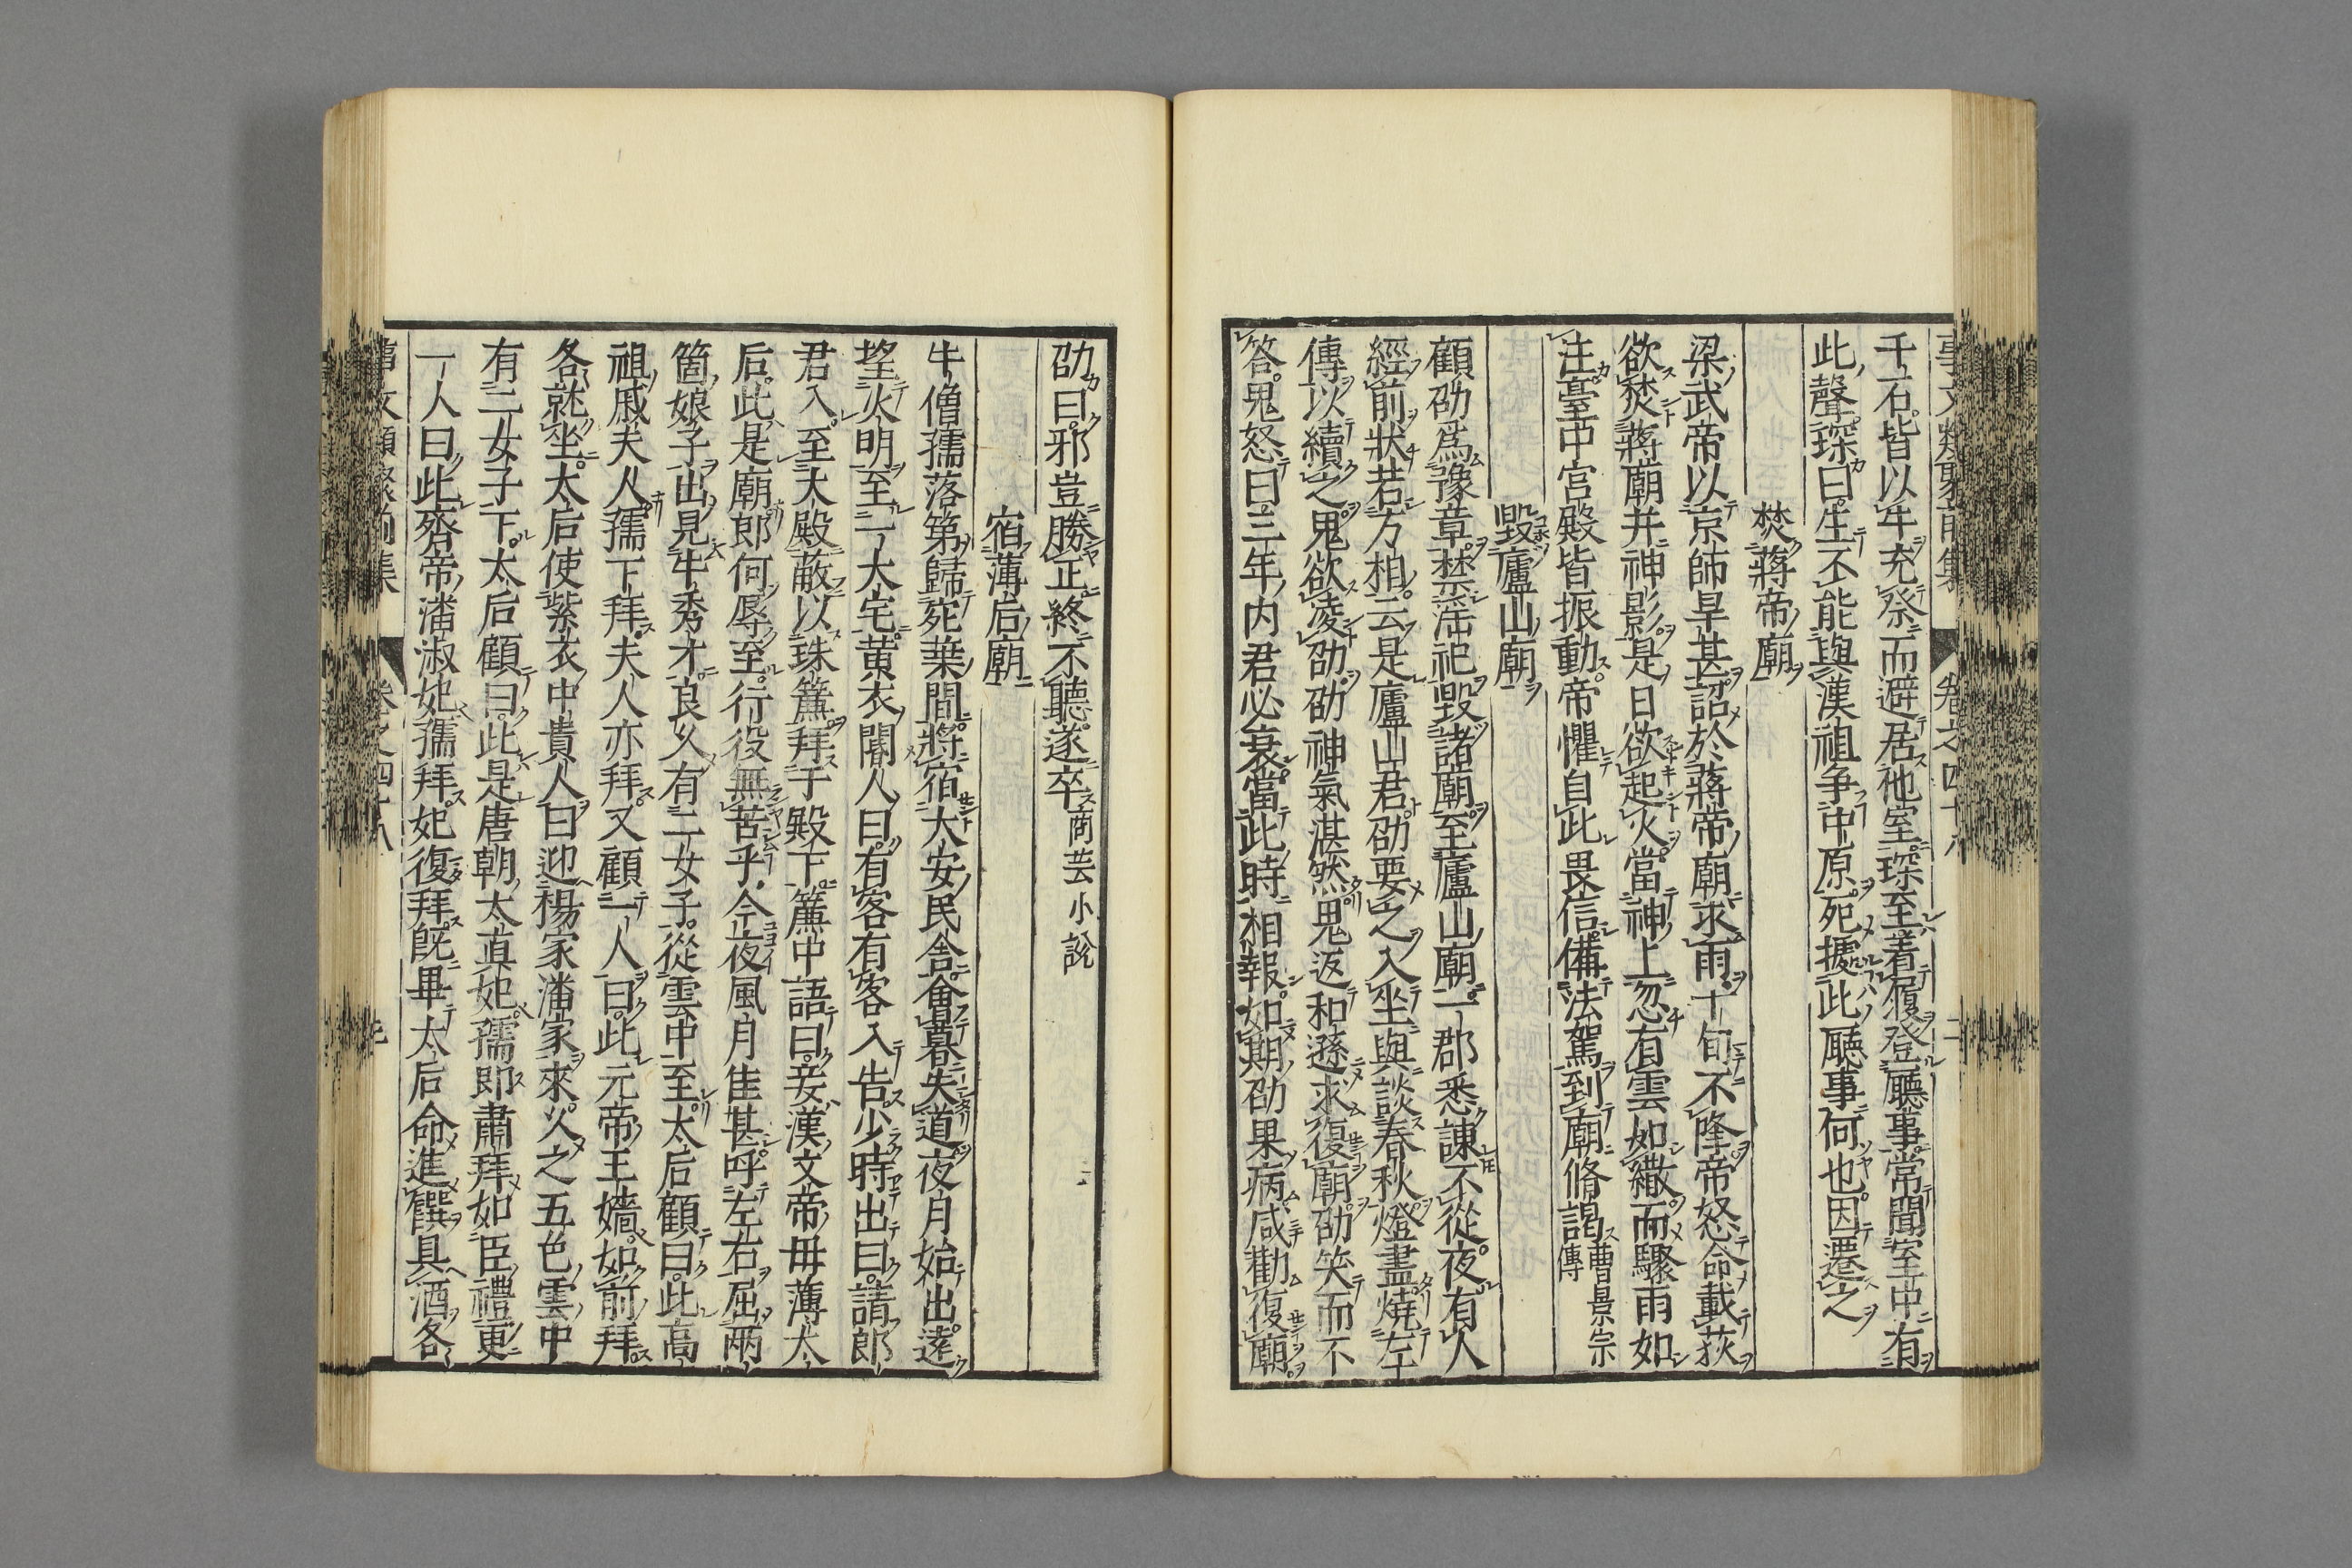 事文類聚前集 卷之四十八
千石皆以牛充祭而避居他室琛至着履登廳事常聞室中有
此聲琛曰生不能與漢祖争中原死據此廳事何也因遷之
焚蔣帝廟
梁武帝以京師旱甚詔於蔣帝廟求雨十旬不降帝怒命載荻
欲焚蔣廟并神影是日欲起火當神上忽有雲如繖而驟雨如
注臺中宮殿皆振動帝懼自此畏信備法駕到廟脩謁曹景宗傳
毀廬山廟
顧劭爲豫章禁淫祀毀諸廟至廬山廟一郡悉諫不從夜有人
經前狀若方相云是廬山君劭要之入坐與談春秋燈盡燒左
傳以續之鬼欲凌劭劭神氣湛然鬼返和遜求復廟劭笑而不
答鬼怒曰三年内君必衰當此時相報如期劭果病咸勸復廟
劭曰邪豈勝正終不聽遂卒商芸小說
宿薄后廟
牛僧孺落第歸宛葉間將宿大安民舍會暮失道夜月始出遠
望火明至一大宅黄衣閽人曰有客有客入告少時出曰請郎
君入至大殿蔽以珠簾拜于殿下簾中語曰妾漢文帝母薄太
后此是廟郎何辱至行役無苦乎今夜風月佳甚呼左右屈兩
箇娘子出見牛秀才良久有二女子從雲中至太后顧曰此高
祖戚夫人孺下拜夫人亦拜又顧一人曰此元帝王嬙如前拜
各就坐太后使紫衣中貴人曰迎楊家潘家來久之五色雲中
有二女子下太后顧曰此是唐朝太真妃孺即肅拜如臣禮更
一人曰此齊帝潘淑妃孺拜妃復拜既畢太后命進饌具酒各
事文類聚前集 卷之四十八